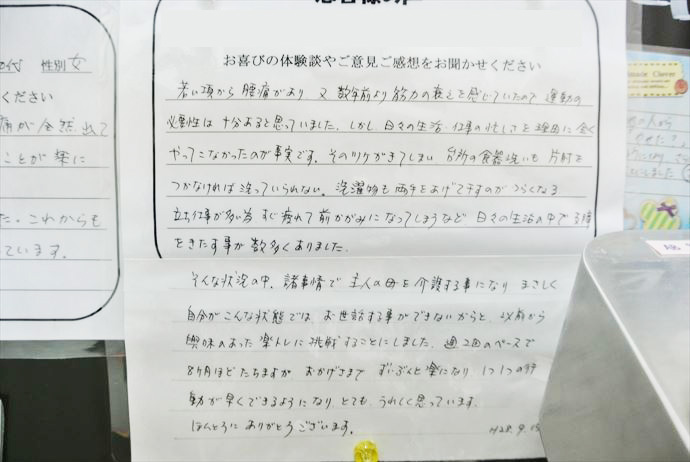 お喜びの体験談やご意見ご感想をお聞かせください
若い頃から腰痛があり 又 数年前より筋力の衰えを感じていたので 運動の
必要性は十分あると思っていました。しかし 日々の生活、仕事の忙しさを理由に全く
やってこなかったのが事実です。そのツケがきてしまい 台所の食器洗いも 片肘を
つかなければ洗っていられない。洗濯物も両手をあげて干すのがつらくなる
立ち仕事が多い為 すぐ疲れて前かがみになってしまうなど、日々の生活の中で支障
をきたす事が数多くありました。
そんな状況の中、諸事情で主人の母を介護する事になり まさしく
自分がこんな状態では お世話する事ができないからと、以前から
興味のあった楽トレに挑戦することにしました。週2回のペースで
8ヶ月ほどたちますが おかげさまで ずいぶんと楽になり、1つ1つの行
動が早くできるようになり、とても うれしく思っています。
ほんとうにありがとうございます。
H28.9.
代 性別 女
ください
痛が全然出て
ことが楽に
た。これからも
ています。
made Clover